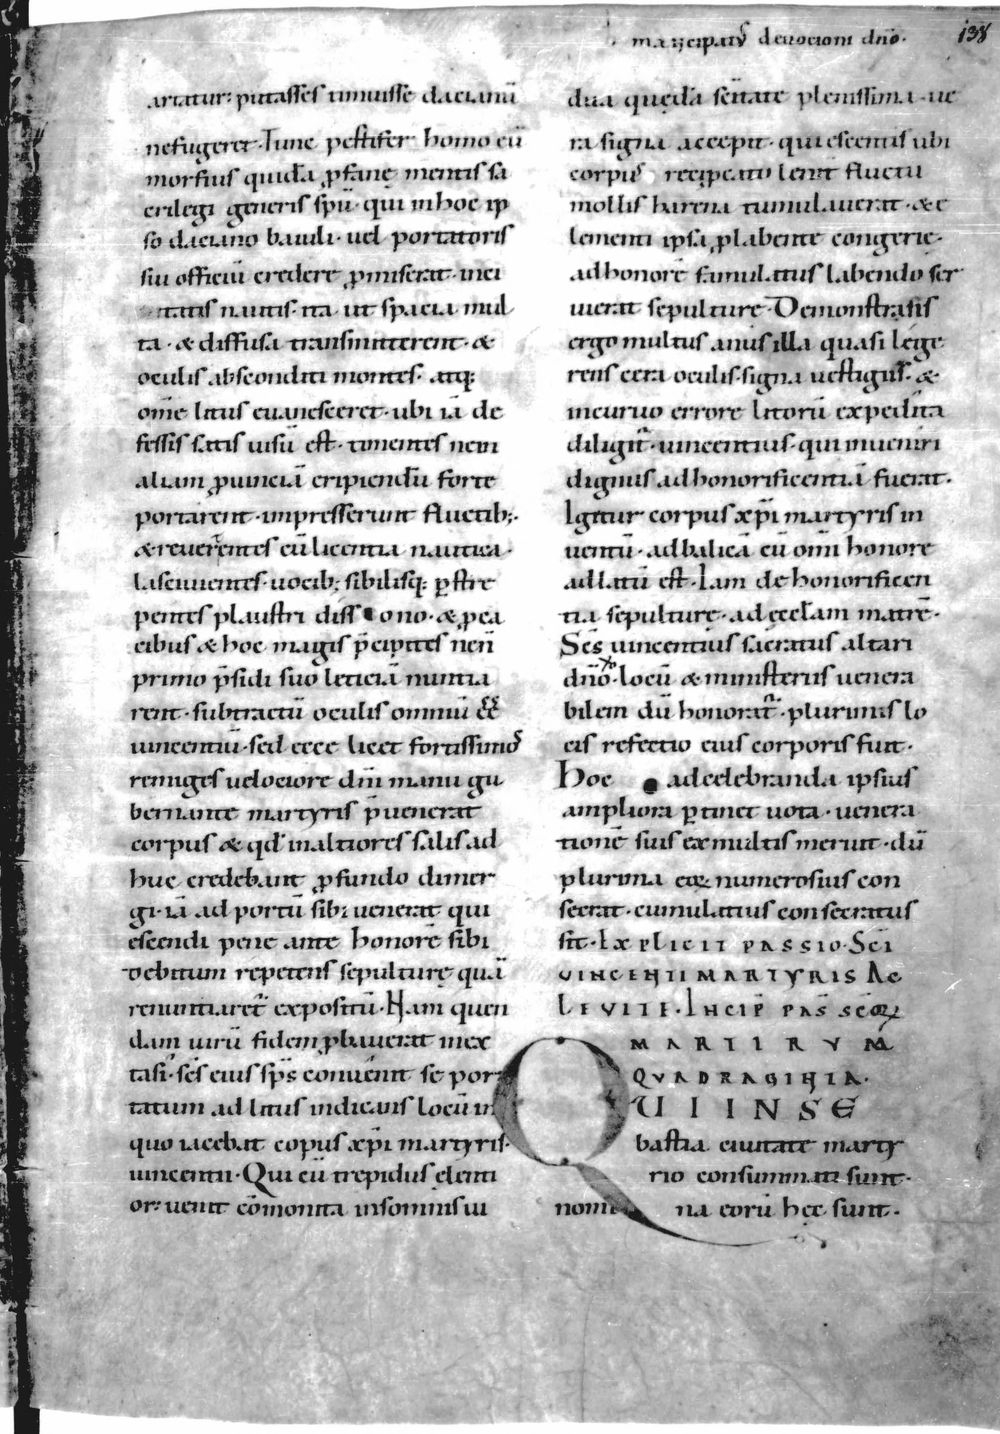 mancipatꝰ deuocioni dn̄o.
138
artatur: putasses timuisse dacianū
nefugeret. Tunc pestifer homo cū
morfius quidā ꝓfanę mentis sa
crilegi generis sp̄u. qui inhoc ip
so daciano baiuli. uel portatoris
sui officiū credere ꝓmiserat. inci
tatis nautis. ita ut spacia mul
ta. & diffusa transmitterent. &
oculis absconditi montes. atq;
om̄e litus euanesceret. ubi iā de
fessis satis uisū est. timentes nein
aliam ꝓuinciā eripiendū forte
portarent. impresserunt fluctib;.
& reuertentes cū licentia nautica.
lasciuientes. uocib; sibilisq; ꝑstre
pentes plaustri diss ono. & pea
cibus & hoc magis p̄cipites nen̄
primo p̄sidi suo leticiā nuntia
rent. subtractū oculis omniū ēē
uincentiū. sed ecce licet fortissimoꝝ
remiges uelociore dn̄i manu gu
bernante martyris p̄uenerat
corpus & qd̄ inaltiores salis ad
huc credebant ꝓfundo dimer
gi. iā ad portū sibi uenerat qui
escendi pene ante honorē sibi
debitum repetens sepulturę quā
renuntiaret̄ expositū. Nam quen
dam uirū fidem ꝓbauerat inex
tasi. sc̄s eius sp̄s conuenit se por
tatum ad litus indicans locū in
quo iacebat copus xp̄i martyris.
uincentii. Qui cū trepidus elenti
or: uenit cōmonita insomnis ui
dua quędā sc̄itate plenissima. ue
ra signa accepit. quiescentis ubi
corpus recipeatu lenit fluctu
mollis harena tumulauerat. & e
lementi ipsa ꝓlabente congerie.
adhonorē famulatus labendo ser
uierat sepulturę. Demonstrasis
ergo multus anus illa quasi lege
rens cera oculis. signa uestigiis. &
incuruo errore litorū expedita
diligit̄. uincentius. qui inueniri
dignus adhonorificentiā fuerat.
Igitur corpus xp̄i martyris in
uentū. ad balicā cū omi honore
adlatū est. Iam de honorificen
tia sepulturę. ad ęcclam matrē.
Sc̄s uincentius sacratus altari
dn̄o. locū & ministeriis uenera
bilem dū honorat̄. plurimis lo
cis refectio eius corporis fuit.
Hoc ad celebranda ipsius
ampliora ꝑtinet uota. uenera
tionē suis ex multis meruit. dū
plurima eoꝝ numerosius con
secrat. cumulatius consecratus
sit. EXPLICIT PASSIO. SCI
VINCENTII MARTYRIS AC
LEVITE. INCIP̄ PAS̄ SCO̅Ꝝ
MARTIRVM
QVADRAGINTA.
QUI INSE
bastia ciuitate marty
rio consummati sunt.
nomi na eorū hęc sunt.